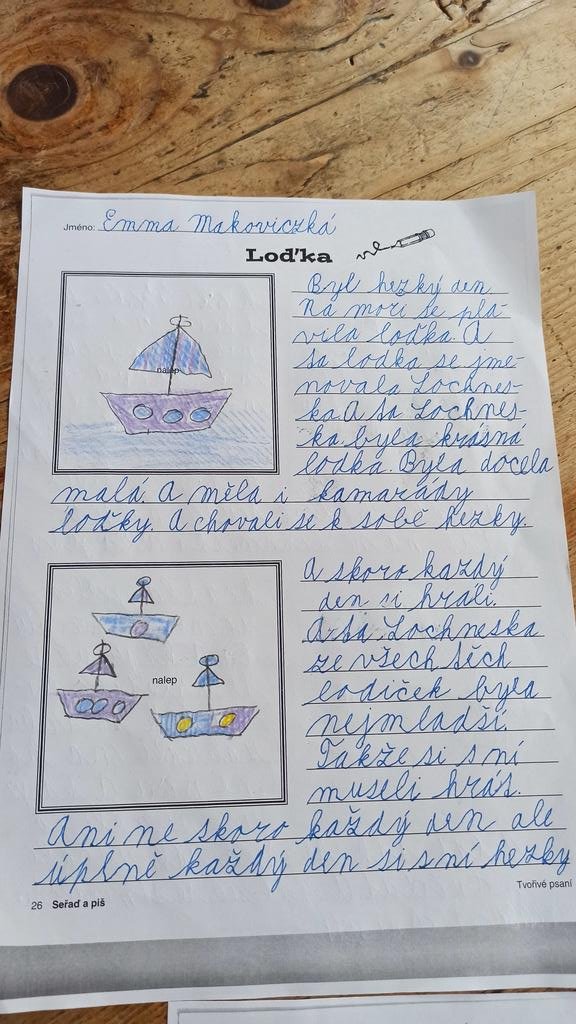 Jméno: Emma Makoviczká
Loďka
nalep
Byl hezký den
Na moři se pla-
vila loďka. A
ta loďka se jme-
novala Lochnes-
ka. A ta Lochnes-
ka byla krásná
loďka. Byla docela
malá. A měla i kamarády
loďky. A chovali se k sobě hezky.
nalep
A skoro každý
den si hráli.
A ta Lochneska
ze všech těch
lodiček byla
nejmladší.
Takže si s ní
museli hrát.
Ani ne skoro každý den ale
úplně každý den si s ní hezky
Tvořivé psaní
26 Seřaď a piš